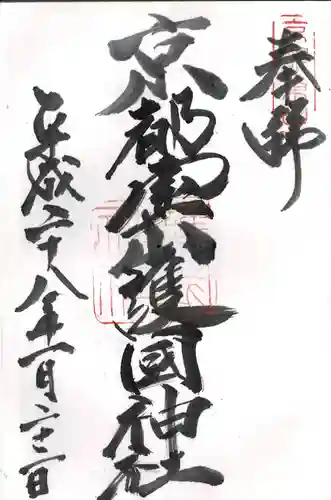 奉拝
京都霊山護國神社
平成二十八年一月二十二日